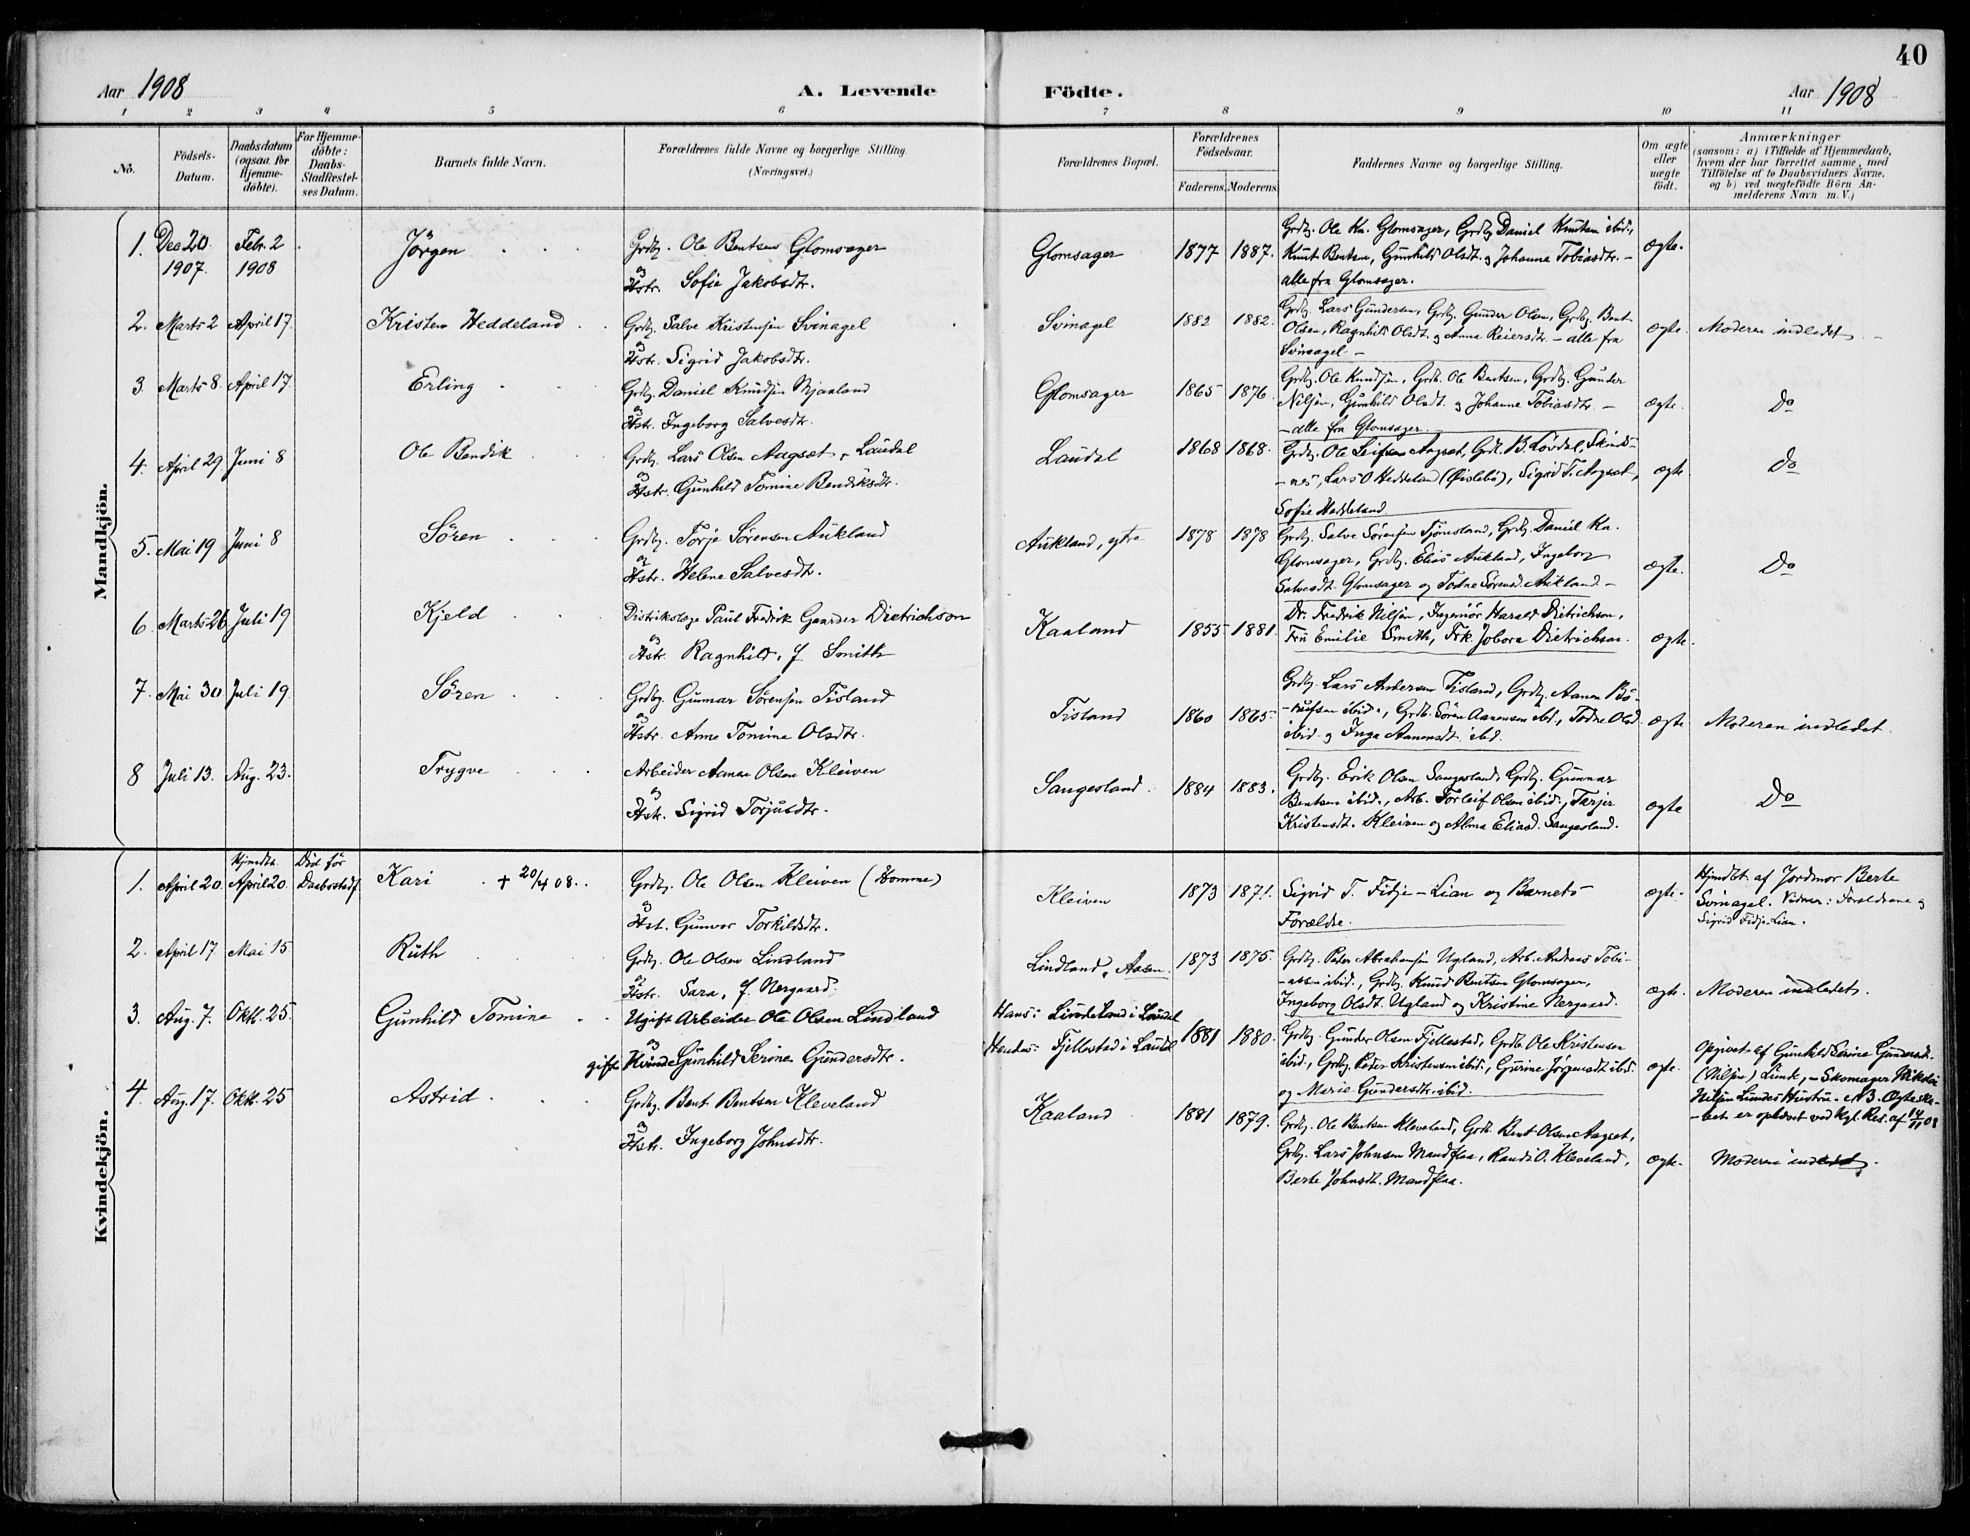 40
Aar 1908 A. Levende Födte. Aar 1908
1 2 3 4 5 6 7 8 9 10 11
No.
Födsels-
Datum.
Daabsdatum
(ogsaa for
Hjemme-
döbte).
For Hjemme-
döbte:
Daabs-
Stadfæstel-
ses Datum.
Barnets fulde Navn.
Forældrenes fulde Navne og borgerlige Stilling.
(Næringsvei.)
Forældrenes Bopæl.
Forældrenes
Födselsaar.
Faderens. Moderens.
Faddernes Navne og borgerlige Stilling.
Om ægte
eller
uægte
födt.
Anmærkninger
(saasom: a) i Tilfælde af Hjemmedaab,
hvem der har forrettet samme, med
Tilföielse af to Daabsvidners Navne,
og b) ved uægtefödte Börn An-
melderens Navn m. V.)
Mandkjön.
1. Dec 20. 1907. Febr. 2 1908 Jörgen
Grdbr. Ole Bentsen Glomsager
og
Hstr. Sofie Jakobsdtr.
Glomsager 1877 1887.
Grdbr. Ole Kn. Glomsager, Grdbr Daniel Knutsen ibid.,
Knut Bentsen, Gunhild Olsdt. og Johanna Tobiasdtr. –
alle fra Glomsager.
ægte.
2. Marts 2 April 17. Kristen Heddeland
Grdbr. Salve Kristensen Svinagel
og
Hstr. Sigrid Jakobsdtr.
Svinagel 1882 1882.
Grdbr. Lars Gundersen, Grdbr. Gunder Olsen, Grdbr. Bent
Olsen, Ragnhild Olsdt. og Anna Reiersdtr. – alle fra
Svinagel –
ægte. Moderen indledet –
3. Marts 8. April 17. Erling
Grdbr. Daniel Knudsen Bjaaland
og
Hstr. Ingeborg Salvesdtr.
Glomsager 1865 1876.
Grdbr. Ole Knudsen, Grdbr. Ole Bentsen, Grdbr. Gunder
Nilsen, Gunhild Olsdt. og Johanne Tobiasdtr. –
– alle fra Glomsager. –
ægte. Do
4. April 29 Juni 8 Ole Bendik
Grdbr. Lars Olsen Aagset, Laudal
og
Hstr. Gunhild Tomine Bendiksdtr.
Laudal 1868 1868.
Grdbr. Ole Leifsen Aagset, Grdbr. B. Lövdal, Skinds-
-nes, Lars O Heddeland (Öislebö), Sigrid T. Aagset,
Sofie Heddeland
ægte. Do
5. Mai 19 Juni 8 Sören
Grdbr. Torje Sörensen Aukland
og
Hstr. Helene Salvesdtr.
Aukland, ytre 1878 1878
Grdbr. Salve Sörensen Tjomsland, Grdbr Daniel Kn.
Glomsager, Grdbr. Elias Aukland, Ingeborg
Salvesdt. Glomsager og Todne Sörensd. Aukland –
ægte. Do
6. Marts 26 Juli 19 Kjeld
Distriktslæge Paul Fredrik Gaarder Dietrichson
og
Hstr. Ragnhild, f. Smith
Kaaland 1855 1881.
Dr. Fredrik Nilsen, Ingeniör Harald Dietrichson,
Fru Emilie Smith, Frk. Dietrichson.
ægte.
7. Mai 30 Juli 19. Sören
Grdbr. Gunnar Sörensen Tisland
og
Hstr. Anne Tomine Olsdtr.
Tisland 1860 1865.
Grdbr. Lars Andersen Tisland, Grdbr. Aanen
ibid., Grdbr. Sören Aanensen ibid., Todne Olsd.
ibid. og Inga Aanensdt. ibid.
ægte Moderen indledet.
8 Juli 13. Aug. 23. Trygve
Arbeider Aanen Olsen Kleiven
og
Hstr. Sigrid Torjusdtr.
Sangesland. 1884 1883.
Grdbr. Erik Olsen Sangesland, Grdbr. Gunnar
Bentsen ibid., Arb. Torleif Olsen ibid., Tarjer
Kristensdt. Kleiven og Alma Eliasd. Sangesland.
ægte Do
Kvindekjön.
1. April 20. Hjmdbt. April 20. Död för Daabsstadf. Kari + 20/4 08.
Grdbr. Ole Olsen Kleiven (Homme)
og
Hst. Gunvor Torkildsdtr.
Kleiven 1873 1871.
Sigrid T. Fidje – Lian og Barnets
Forældre.
ægte.
Hjmdbt. af Jordmor Berte
Svinagel. Vidner: Forældrene og
Sigrid Fidje-Lian.
2. April 17 Mai 15 Ruth
Grdbr. Ole Olsen Lindland
og
Hstr. Sara, f. Nergaard.
Lindland, Aasen. 1873 1875.
Grdbr. Peter Abrahamsen Ugland, Arb. Andreas Tobi-
-assen ibid., Grdbr. Knud Bentsen Glomsager,
Ingeborg Olsdt. Ugland og Kristine Nergaard.
ægte. Moderen indledet.
3. Aug. 7. Oktb. 25. Gunhild Tomine
Ugift Arbeider Ole Olsen Lindland
og
gift Kvinde Gunhild Serine Gundersdtr.
Hans: Lindland i Laudal
Hendes: Fjellestad i Laudal
1881 1880.
Grdbr. Gunder Olsen Fjellestad, Grdbr Ole Kristensen
ibid., Grdbr. Peder Kristensen ibid., Gurine Jörgensdt ibid.
og Marie Gundersdtr. ibid.
ægte.
Opgivet af Gunhild Serine Gundersdt.
(Nilsen) Lunde, – Skomager
Nilsen Lundes Hustru. NB. Ægteska-
-bet er oplöst ved Kgl. Res. af 14/11 08
4. Aug. 17. Oktb. 25 Astrid
Grdbr. Bent Bentsen Kleveland
og
Hstr. Ingeborg Johnsdtr.
Kaaland 1881 1879.
Grdbr. Ole Bentsen Kleveland, Grdbr. Bent Olsen Aagset,
Grdbr. Lars Johnsen Mandflaa, Randi O. Kleveland,
Berte Johnsdt. Mandflaa.
ægte. Moderen indledet.